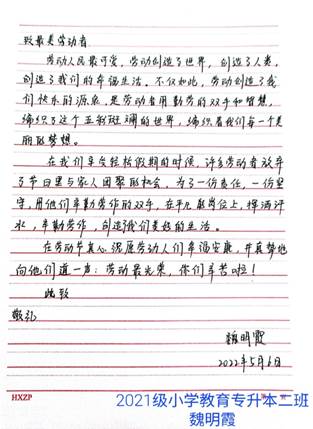 致最美劳动者
劳动人民最可爱,劳动创造了世界,创造了人类,
创造了我们的幸福生活。不仅如此,劳动创造了我
们快乐的源泉,是劳动者用勤劳的双手和智慧,
编织了这个五彩斑斓的世界,编织着我们每一个美
丽的梦想。
在我们享受轻松假期的时候,许多劳动者放弃
了节日里与家人团聚的机会,为了一份责任,一份坚
守,用他们辛勤劳作的双手,在平凡的岗位上,挥洒汗
水,辛勤劳作,创造我们美好的生活。
在劳动节真心祝愿劳动人们幸福安康,并真挚地
向他们道一声:劳动最光荣,你们辛苦啦!
此致
敬礼
魏明霞
2022年5月6日
HXZP
2021级小学教育专升本二班
魏明霞